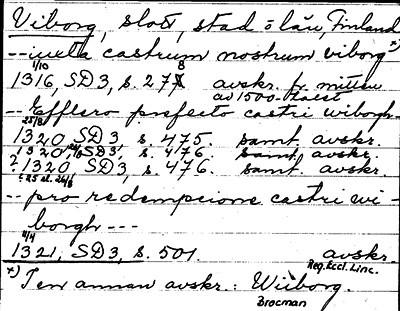 Viborg, slott, stad o. län, Finland
-- iuxta castrum nostrum viborg *)
1/10 8
1316, SD3, s. 27 avskr. fr. mitten
av 1500-talet
-- Efflero prefecto castri wiborgh --
25/8
1320, SD3, s. 475. samt. avskr.
1320, SD3, s. 476. samt. avskr.
? 1320 SD3, s. 476. samt. avskr.
-- pro redempcione castri wi-
borgh ---
11/4
1321, SD3, s. 501. avskr.
Reg. Eccl. Linc.
*) I en annan avskr.: Wiiborg.
Brocman